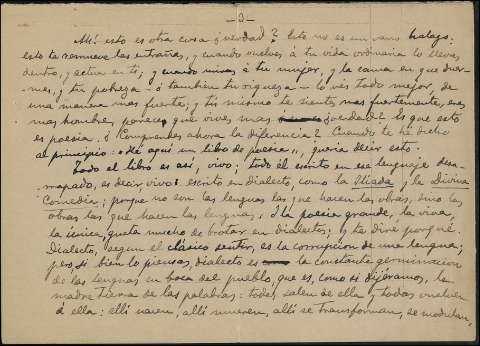 —3—
Ah! esto es otra cosa ¿verdad? Este no es un vano halago:
esto te remueve las entrañas, y cuando vuelves á tu vida ordinaria lo llevas
dentro, y actua en ti, y cuando miras á tu mujer, y la cama en que duer-
mes, y tu pobreza - ó tambien tu riqueza - lo ves todo mejor, de
una manera mas fuerte; y tu mismo te sientes mas fuertemente, eres
mas hombre, parece que vives mas ¿verdad? Es que esto
es poesia. ¿Comprendes ahora la diferencia? Cuando te he dicho
al principio: "He aqui un libro de poesia", queria decir esto.
Todo el libro es así, vivo; todo él escrito en ese lenguaje desa-
rrapado, es decir vivo: escrito en dialecto, como la Iliada y la Divina
Comedia; porque no son las lenguas las que hacen las obras, sino las
obras las que hacen las lenguas. Y la poesia grande, la viva,
la única, gusta mucho de brotar en dialectos; y te diré porqué.
Dialecto, segun el clásico sentir, es la corrupcion de una lengua;
pero, si bien lo piensas, dialecto es la constante germinacion
de las lenguas en boca del pueblo, que es, como si dijéramos, la
madre tierra de las palabras: todas salen de ella y todas vuelven
á ella: allí nacen, allí mueren, allí se transforman, se modulan,